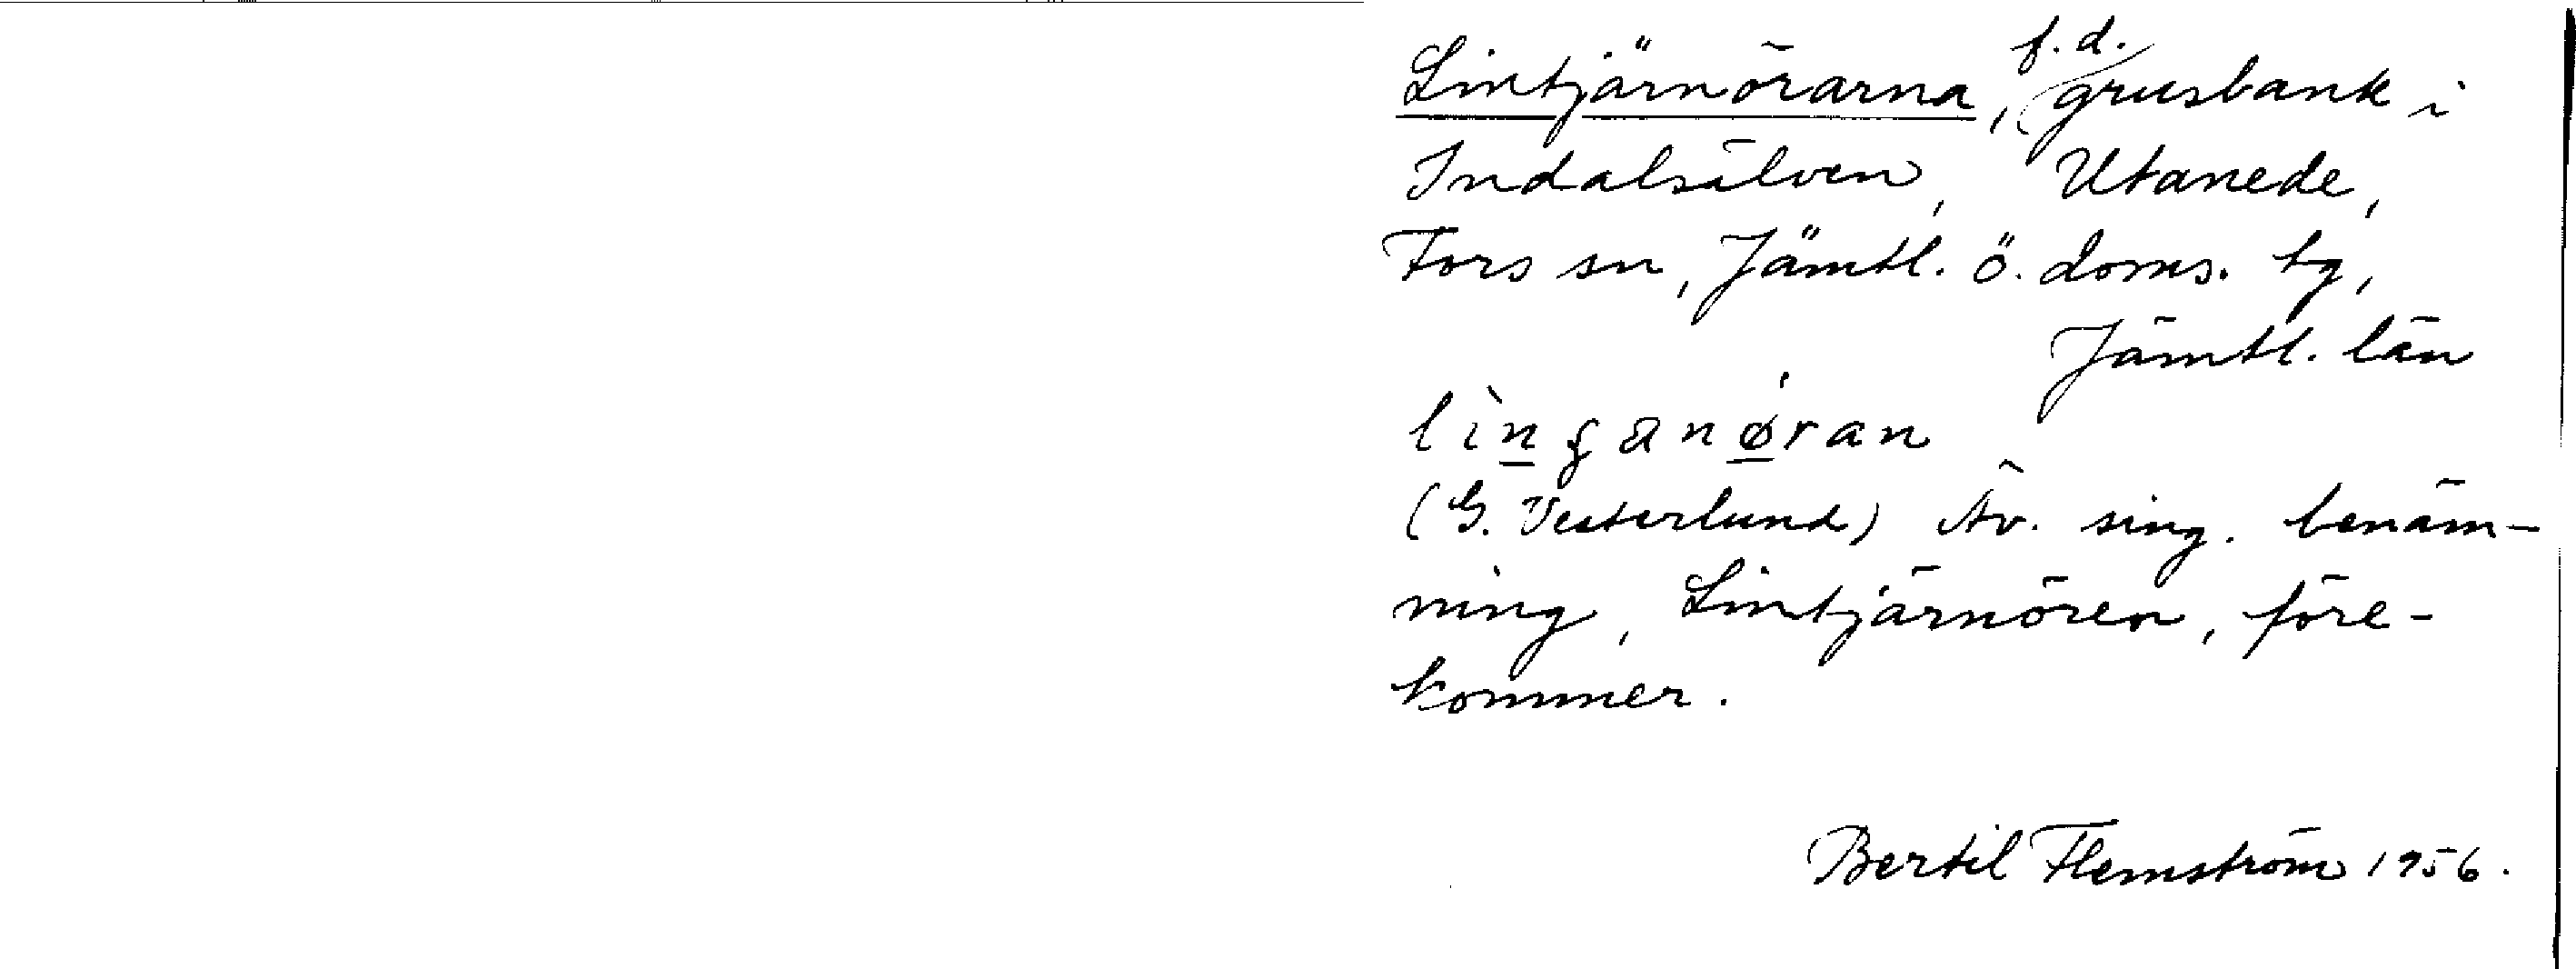 Lintjärnörarna, f.d. grusbank i
Indalsälven, Utanede,
Fors sn, Jämtl. ö. doms. tg,
Jämtl. län
(G. Vesterlund) Äv. sing. benäm-
ning, Lintjärnören, före-
kommer.
Bertil Flemström 1956.